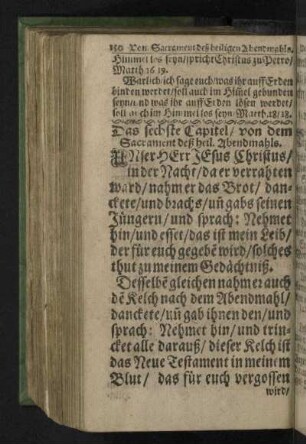 150 Von Sacrament deß heiligen Abendmahls.
Himmel los seyn/ spricht Christus zu Petro/
Matth 16 19.
Warlich ich sage euch/ was ihr auff Erden
binden werdet/ soll auch im Him̃el gebunden
seyn/ und was ihr auff Erden lösen werdet/
soll auch im Himmel los seyn Matth. 18/18.
Das sechste Capitel/ von dem
Sacrament deß heil. Abendmahls.
UNser HErr JEsus Christus/
in der Nacht/ da er verrahten
ward/ nahm er das Brot/ dan-
ckete/ und brachs/ uñ gabs seinen
Jüngern/ und sprach: Nehmet
hin/ und esset/ das ist mein Leib/
der für euch gegebẽ wird/ solches
thut zu meinem Gedächtniß.
Desselbẽ gleichen nahm er auch
dẽ Kelch nach dem Abendmahl/
danckete/ uñ gab ihnen den/ und
sprach: Nehmet hin/ und trin-
cket alle darauß/ dieser Kelch ist
das Neue Testament in meinem
Blut/ das für euch vergossen
wird/